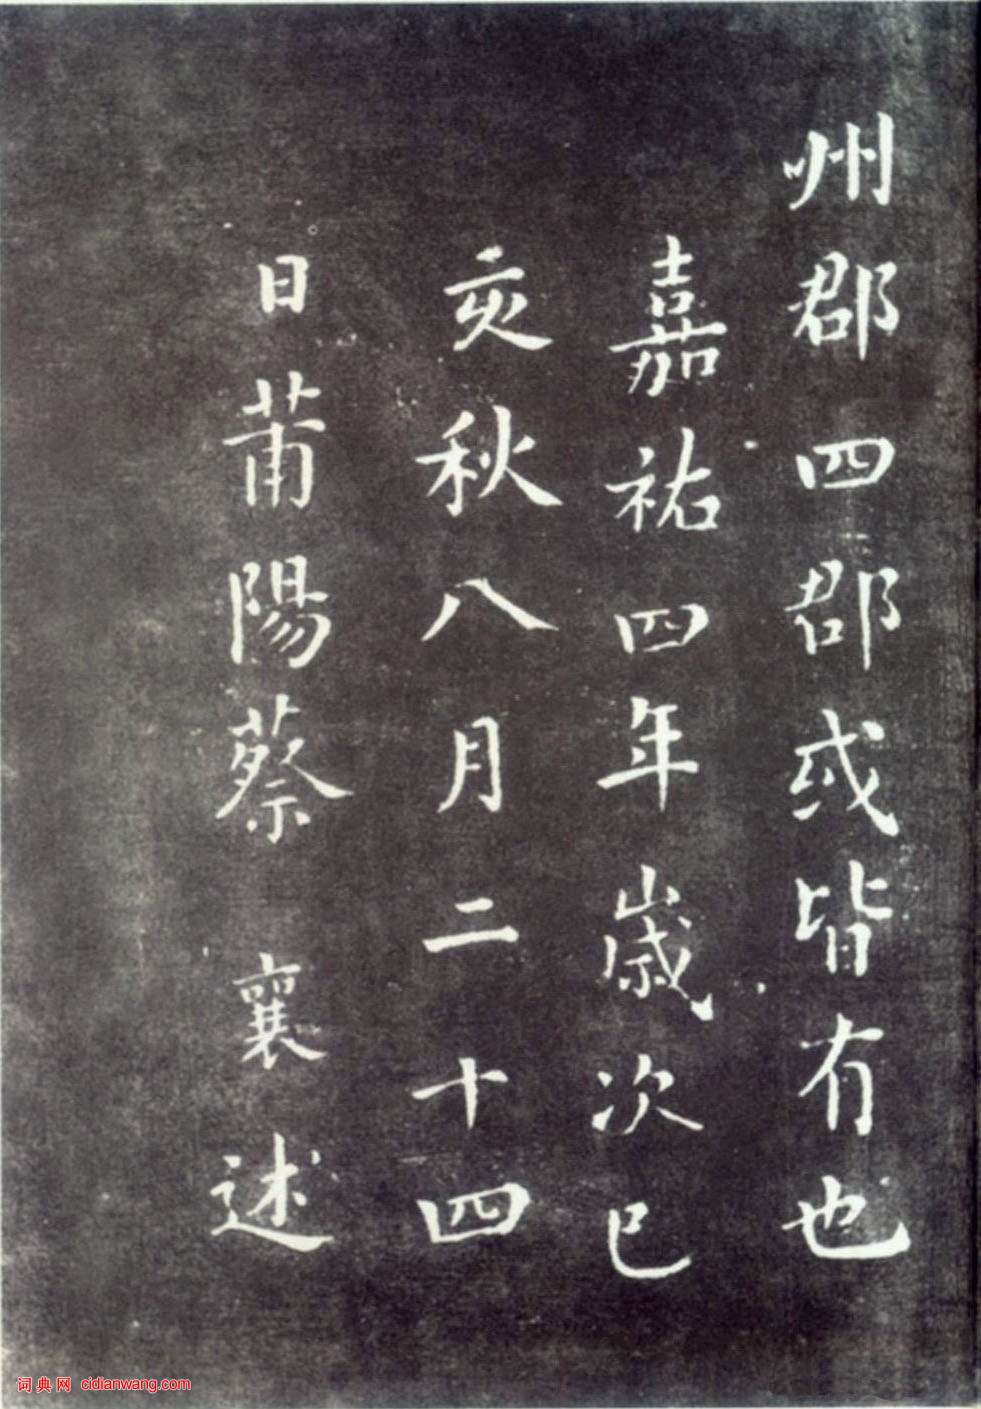 州郡四郡或皆有也
嘉祐四年歲次己
亥秋八月二十四
日莆陽蔡襄述
词典网 cidianwang.com